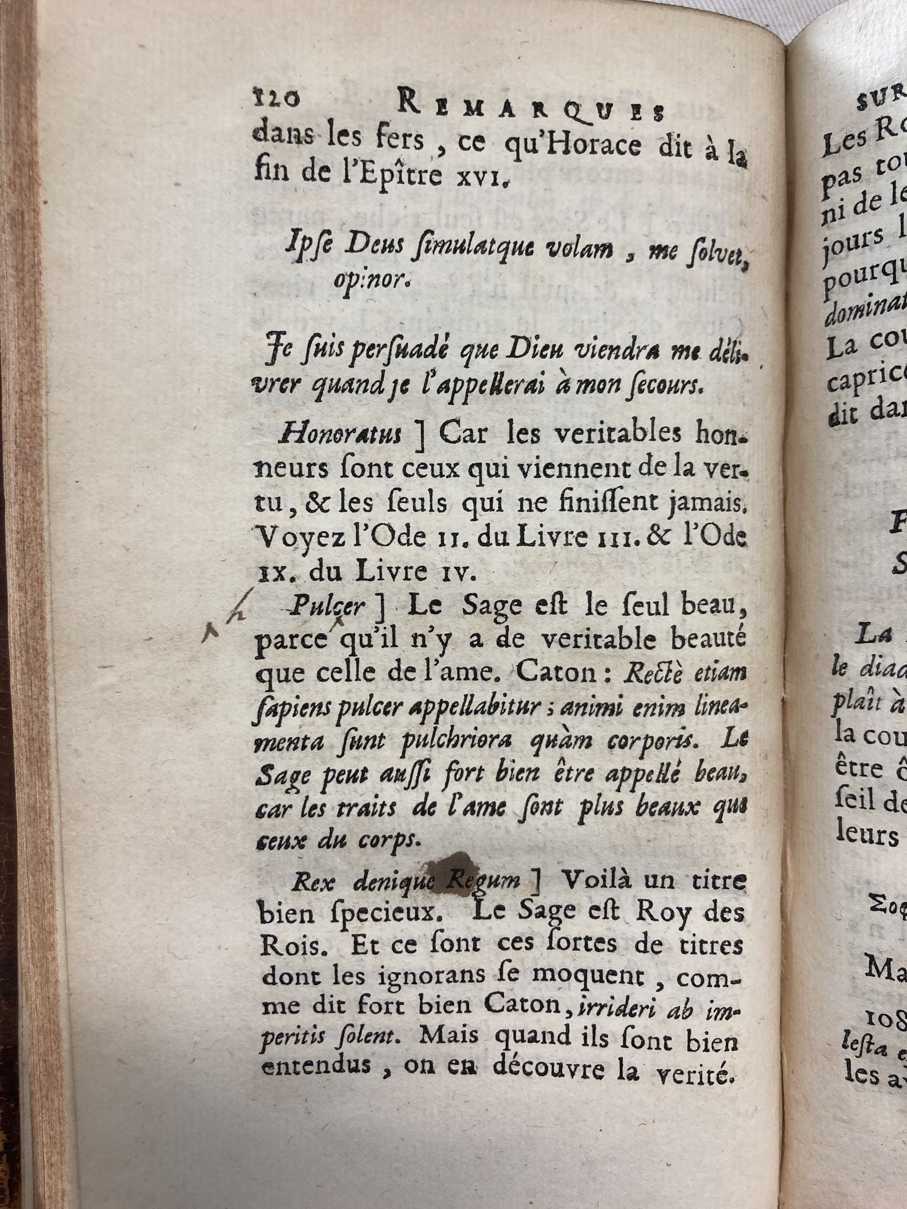 120 REMARQUES
dans les fers, ce qu'Horace dit à la
fin de l'Epître XVI.
Ipſe Deus ſimulatque volam, me ſolvet,
opinor.
Je ſuis perſuadé que Dieu viendra me déli-
vrer quand je l'appellerai à mon ſecours.
Honoratus ] Car les veritables hon-
neurs ſont ceux qui viennent de la ver-
tu, & les ſeuls qui ne finiſſent jamais.
Voyez l'Ode II. du Livre III. & l'Ode
IX. du Livre IV.
h Pulcer ] Le Sage eſt le ſeul beau,
parce qu'il n'y a de veritable beauté
que celle de l'ame. Caton : Rectè etiam
ſapiens pulcer appellabitur ; animi enim linea-
menta ſunt pulchriora quàm corporis. Le
Sage peut auſſi fort bien être appellé beau,
car les traits de l'ame ſont plus beaux que
ceux du corps.
Rex denique Regum ] Voilà un titre
bien ſpecieux. Le Sage eſt Roy des
Rois. Et ce ſont ces ſortes de titres
dont les ignorans ſe moquent, com-
me dit fort bien Caton, irrideri ab im-
peritis ſolent. Mais quand ils ſont bien
entendus, on en découvre la verité.
SUR
Les
pas
ni de
jours
pourqu
dominat
La
caprice
dit
La
le
plaît à
la
être
ſeil
leurs
108
les